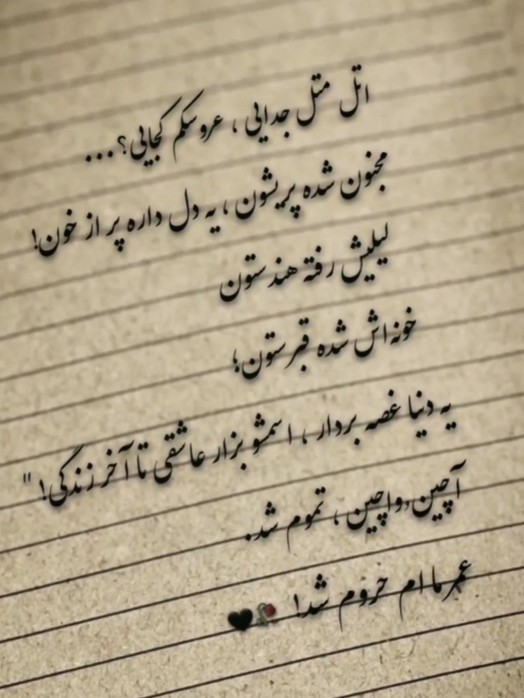 اتل متل جدایی ، عروسکم کجایی؟...
مجنون شده پریشون ، یه دل داره پر از خون!
لیلیش رفته هندستون
خونه‌اش شده قبرستون؛
یه دنیا غصه بردار ، اسمشو بزار عاشقی تا آخر زندگی! "
آچین‌واچین ، تموم شد.
عمر ما ام حروم شد! 🥀🖤